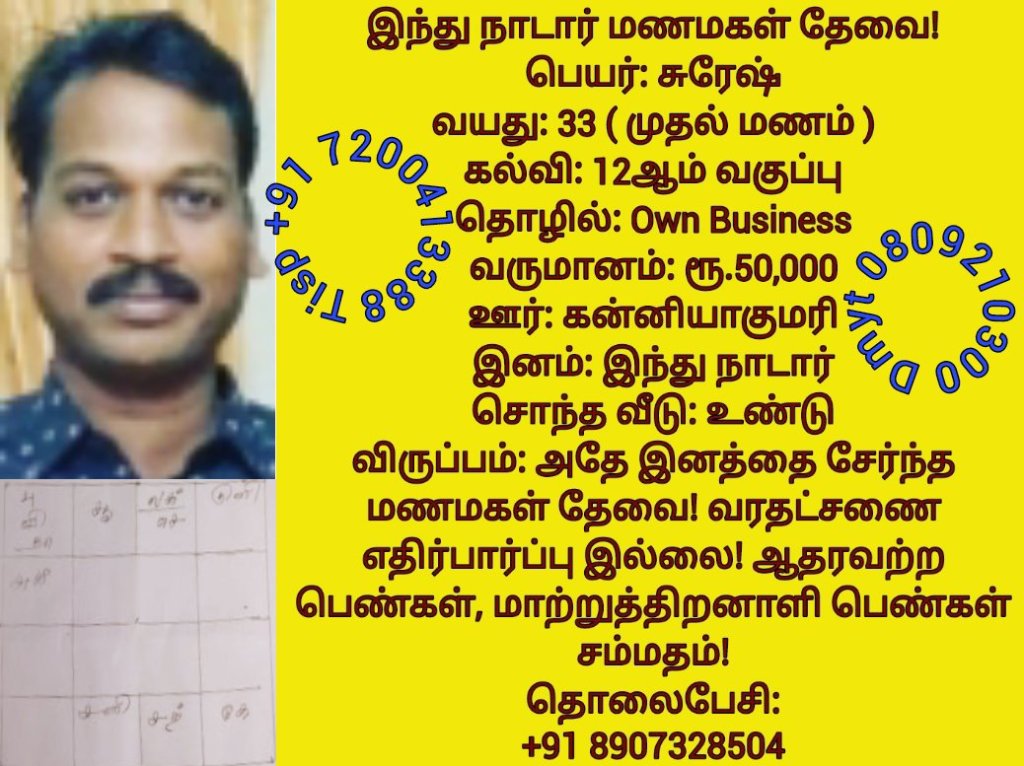 இந்து நாடார் மணமகள் தேவை!
பெயர்: சுரேஷ்
வயது: 33 ( முதல் மணம் )
கல்வி: 12ஆம் வகுப்பு
தொழில்: Own Business
வருமானம்: ரூ.50,000
ஊர்: கன்னியாகுமரி
இனம்: இந்து நாடார்
சொந்த வீடு: உண்டு
விருப்பம்: அதே இனத்தை சேர்ந்த
மணமகள் தேவை! வரதட்சணை
எதிர்பார்ப்பு இல்லை! ஆதரவற்ற
பெண்கள், மாற்றுத்திறனாளி பெண்கள்
சம்மதம்!
தொலைபேசி:
+91 8907328504
Tisp +91 7200413388
Dmyt 0809210300
சனி